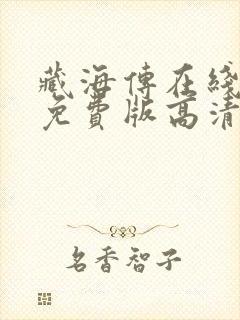 藏海傳在綫
免費版高清
名香智子